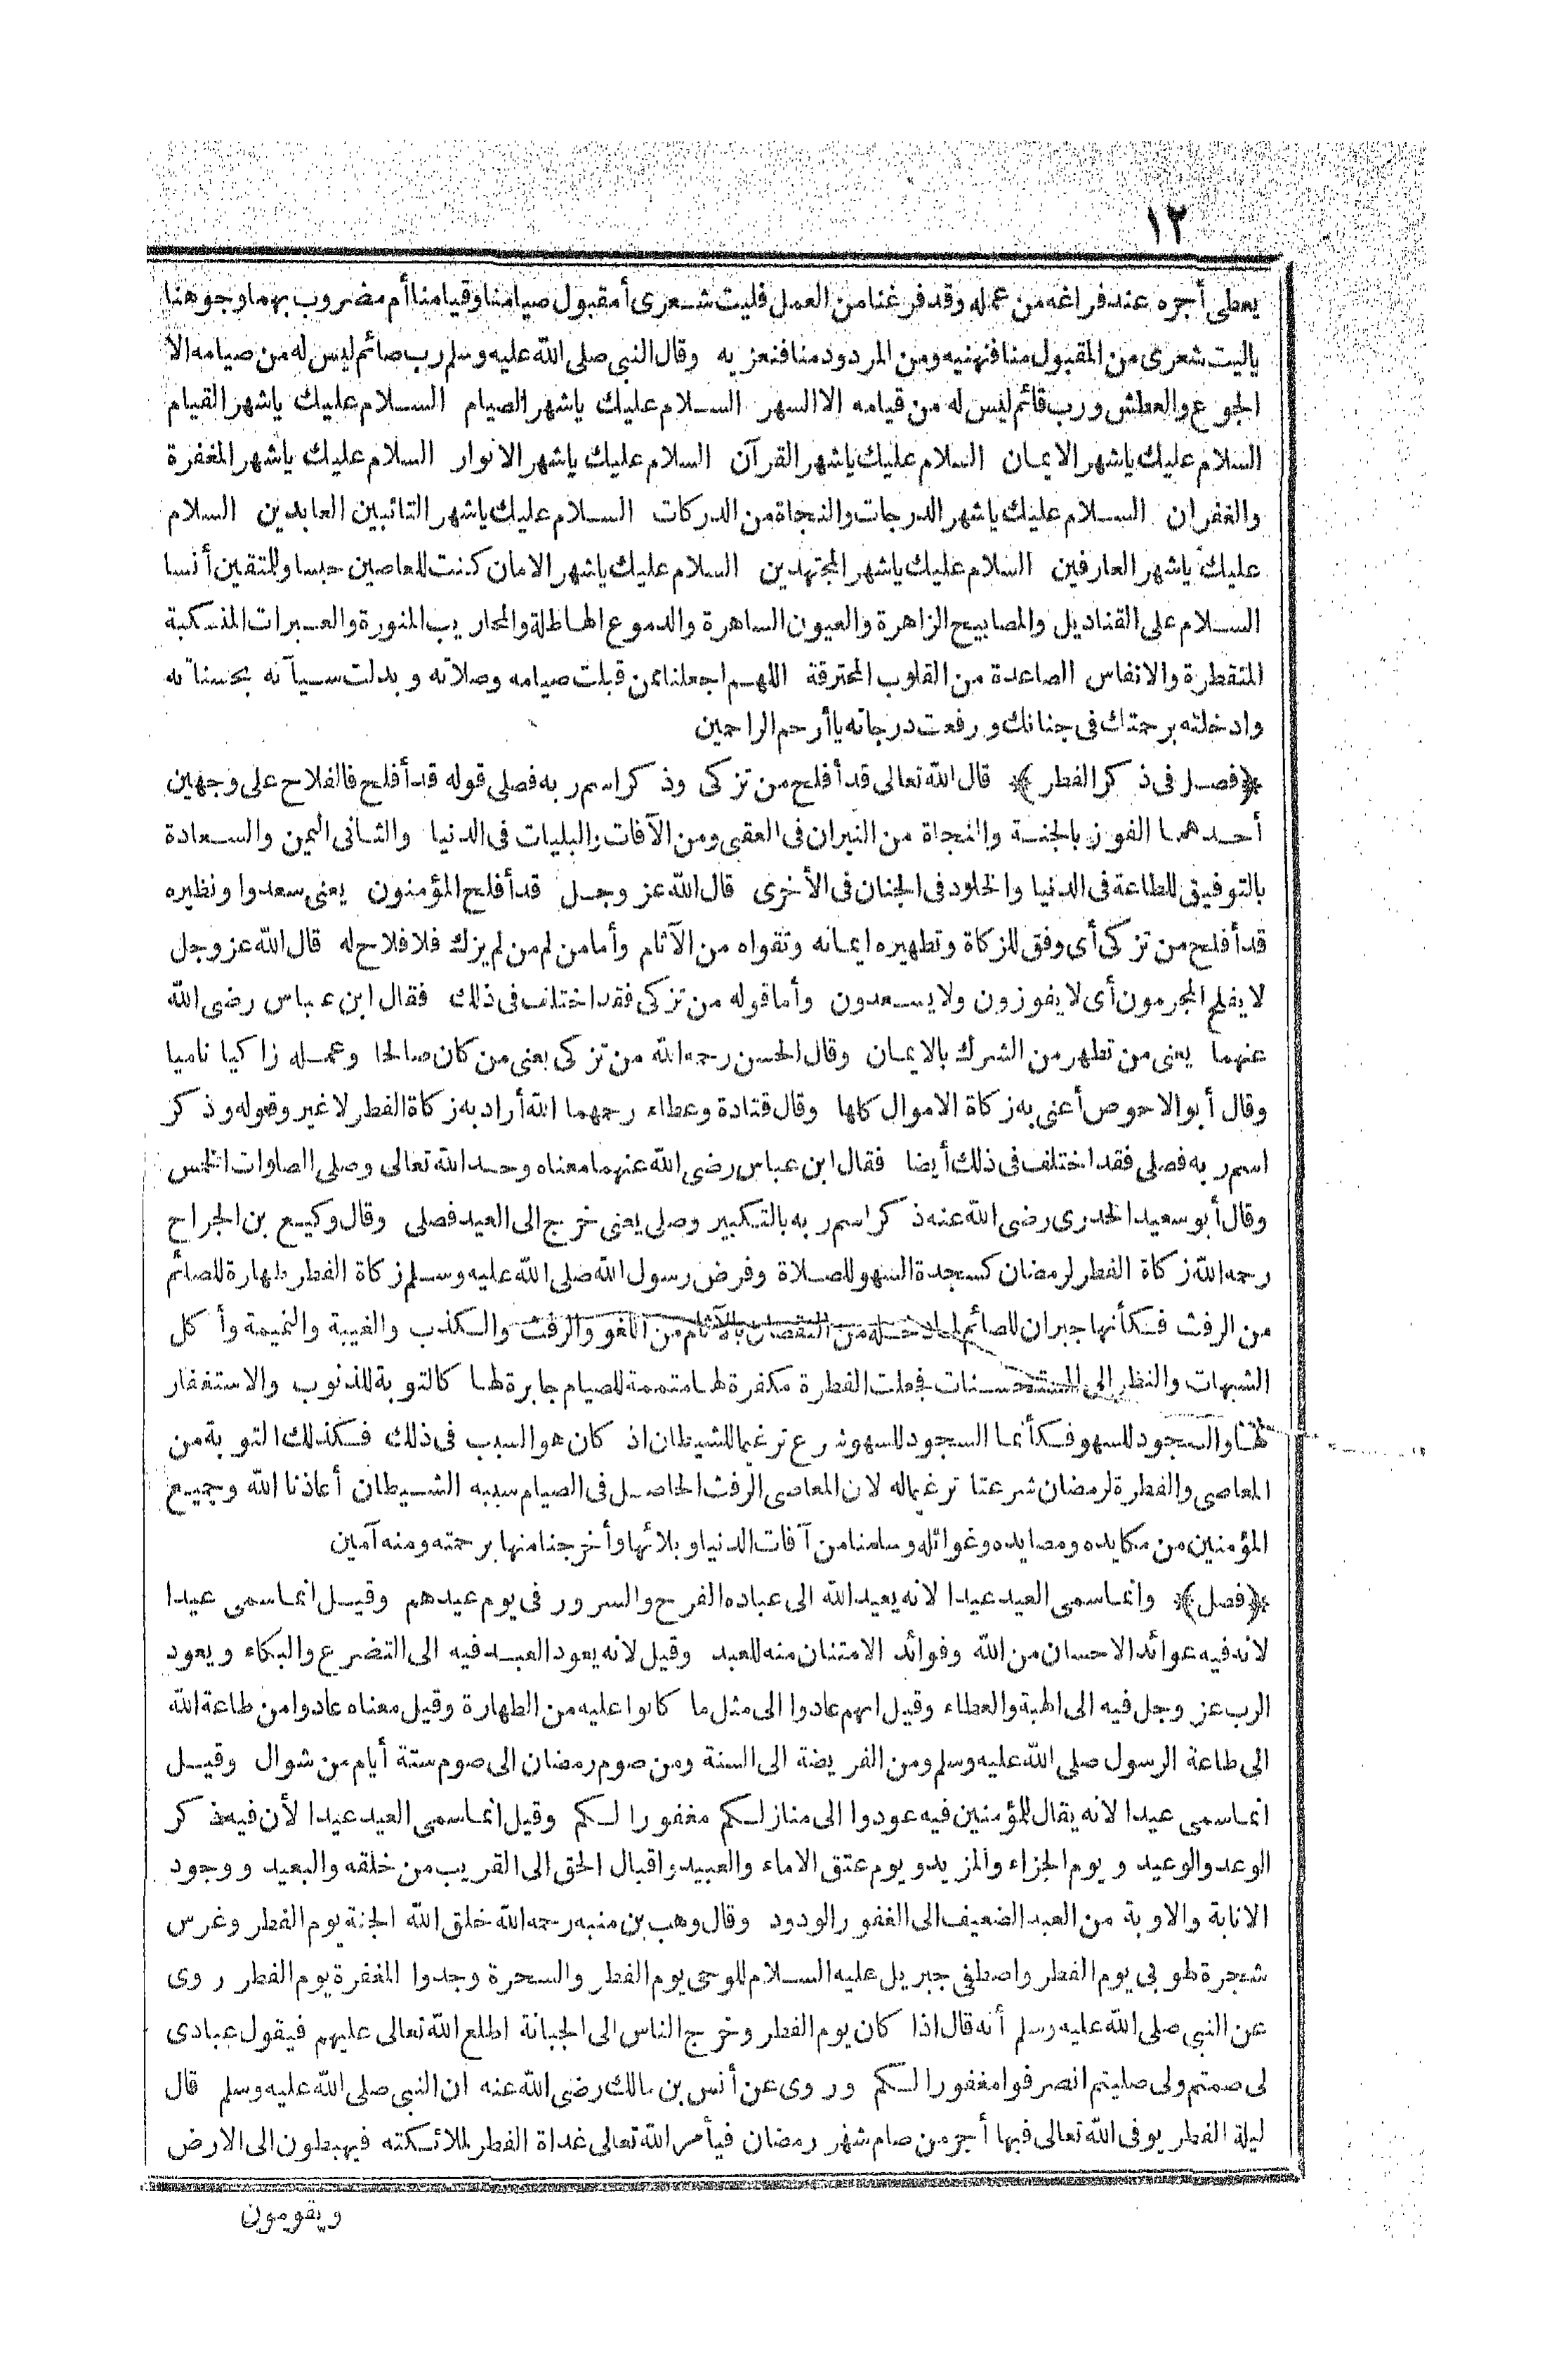 ١٢
يعطى أجره عند فراغه من عمله وقد فرغنا من العمل فليت شعرى أمقبول صيامنا وقيامنا أم مضروب بهما وجوهنا
ياليت شعرى من المقبول منا فنهنيه ومن المردود منا فنعزيه وقال النبى صلى الله عليه وسلم رب صائم ليس له من صيامه الا
الجوع والعطش ورب قائم ليس له من قيامه الا السهر السلام عليك ياشهر الصيام السلام عليك ياشهر القيام
السلام عليك ياشهر الايمان السلام عليك ياشهر القرآن السلام عليك ياشهر الانوار السلام عليك ياشهر المغفرة
والغفران السلام عليك ياشهر الدرجات والنجاة من الدركات السلام عليك ياشهر التائبين العابدين السلام
عليك ياشهر العارفين السلام عليك ياشهر المجتهدين السلام عليك ياشهر الامان كنت للعاصين حبسا وللمتقين أنسا
السلام على القناديل والمصابيح الزاهرة والعيون الساهرة والدموع الهاطلة والمحاريب المنورة والعبرات المنسكبة
المتقطرة والانفاس الصاعدة من القلوب المحترقة اللهم اجعلنا ممن قبلت صيامه وصلاته وبدلت سيآته بحسناته
وادخلته برحمتك فى جنانك ورفعت درجاته ياأرحم الراحمين
﴿فصل فى ذكر الفطر﴾ قال الله تعالى قد أفلح من تزكى وذكر اسم ربه فصلى قوله قد أفلح فالفلاح على وجهين
أحدهما الفوز بالجنة والنجاة من النيران فى العقبى ومن الآفات والبليات فى الدنيا والثانى اليمن والسعادة
بالتوفيق للطاعة فى الدنيا والخلود فى الجنان فى الأخرى قال الله عز وجل قد أفلح المؤمنون يعنى سعدوا ونظيره
قد أفلح من تزكى أى وفق للزكاة وتطهيره ايمانه وتقواه من الآثام وأما من لم من لم يزك فلا فلاح له قال الله عز وجل
لا يفلح المجرمون أى لا يفوزون ولا يسعدون وأما قوله من تزكى فقد اختلف فى ذلك فقال ابن عباس رضى الله
عنهما يعنى من تطهر من الشرك بالايمان وقال الحسن رحمه الله من تزكى يعنى من كان صالحا وعمله زاكيا ناميا
وقال أبو الاحوص أعنى به زكاة الاموال كلها وقال قتادة وعطاء رحمهما الله أراد به زكاة الفطر لا غير وقوله وذكر
اسم ربه فصلى فقد اختلف فى ذلك أيضا فقال ابن عباس رضى الله عنهما معناه وحد الله تعالى وصلى الصلوات الخمس
وقال أبو سعيد الخدرى رضى الله عنه ذكر اسم ربه بالتكبير وصلى يعنى خرج الى العيد فصلى وقال وكيع بن الجراح
رحمه الله زكاة الفطر لرمضان كسجدة السهو للصلاة وفرض رسول الله صلى الله عليه وسلم زكاة الفطر طهارة للصائم
من الرفث فكأنها جبران للصائم لما دخله من النقصان بالآثام من اللغو والرفث والكذب والغيبة والنميمة وأكل
الشبهات والنظر الى المستحسنات فجعلت الفطرة مكفرة لها متممة للصيام جابرة لها كالتوبة للذنوب والاستغفار
لها والسجود للسهو فكأنما السجود للسهو شرع ترغيما للشيطان اذ كان هو السبب فى ذلك فكذلك التوبة من
المعاصى والفطرة لرمضان شرعتا ترغيما له لان المعاصى الرفث الحاصل فى الصيام سببه الشيطان أعاذنا الله وجميع
المؤمنين من مكايده ومصايده وغوائله وسلمنا من آفات الدنيا وبلائها وأخرجنا منها برحمته ومنه آمين
﴿فصل﴾ وانما سمى العيد عيدا لانه يعيد الله الى عباده الفرح والسرور فى يوم عيدهم وقيل انما سمى عيدا
لانه فيه عوائد الاحسان من الله وفوائد الامتنان منه للعبد وقيل لانه يعود العبد فيه الى التضرع والبكاء ويعود
الرب عز وجل فيه الى الهبة والعطاء وقيل انهم عادوا الى مثل ما كانوا عليه من الطهارة وقيل معناه عادوا من طاعة الله
الى طاعة الرسول صلى الله عليه وسلم ومن الفريضة الى السنة ومن صوم رمضان الى صوم ستة أيام من شوال وقيل
انما سمى عيدا لانه يقال للمؤمنين فيه عودوا الى منازلكم مغفورا لكم وقيل انما سمى العيد عيدا لأن فيه ذكر
الوعد والوعيد ويوم الجزاء والمزيد ويوم عتق الاماء والعبيد واقبال الحق الى القريب من خلقه والبعيد ووجود
الانابة والاوبة من العبد الضعيف الى الغفور الودود وقال وهب بن منبه رحمه الله خلق الله الجنة يوم الفطر وغرس
شجرة طوبى يوم الفطر واصطفى جبريل عليه السلام للوحى يوم الفطر والسحرة وجدوا المغفرة يوم الفطر روى
عن النبى صلى الله عليه وسلم أنه قال اذا كان يوم الفطر وخرج الناس الى الجبانة اطلع الله تعالى عليهم فيقول عبادى
لى صمتم ولى صليتم انصرفوا مغفورا لكم وروى عن أنس بن مالك رضى الله عنه ان النبى صلى الله عليه وسلم قال
ليلة الفطر يوفى الله تعالى فيها أجر من صام شهر رمضان فيأمر الله تعالى غداة الفطر لملائكته فيهبطون الى الارض
ويقومون